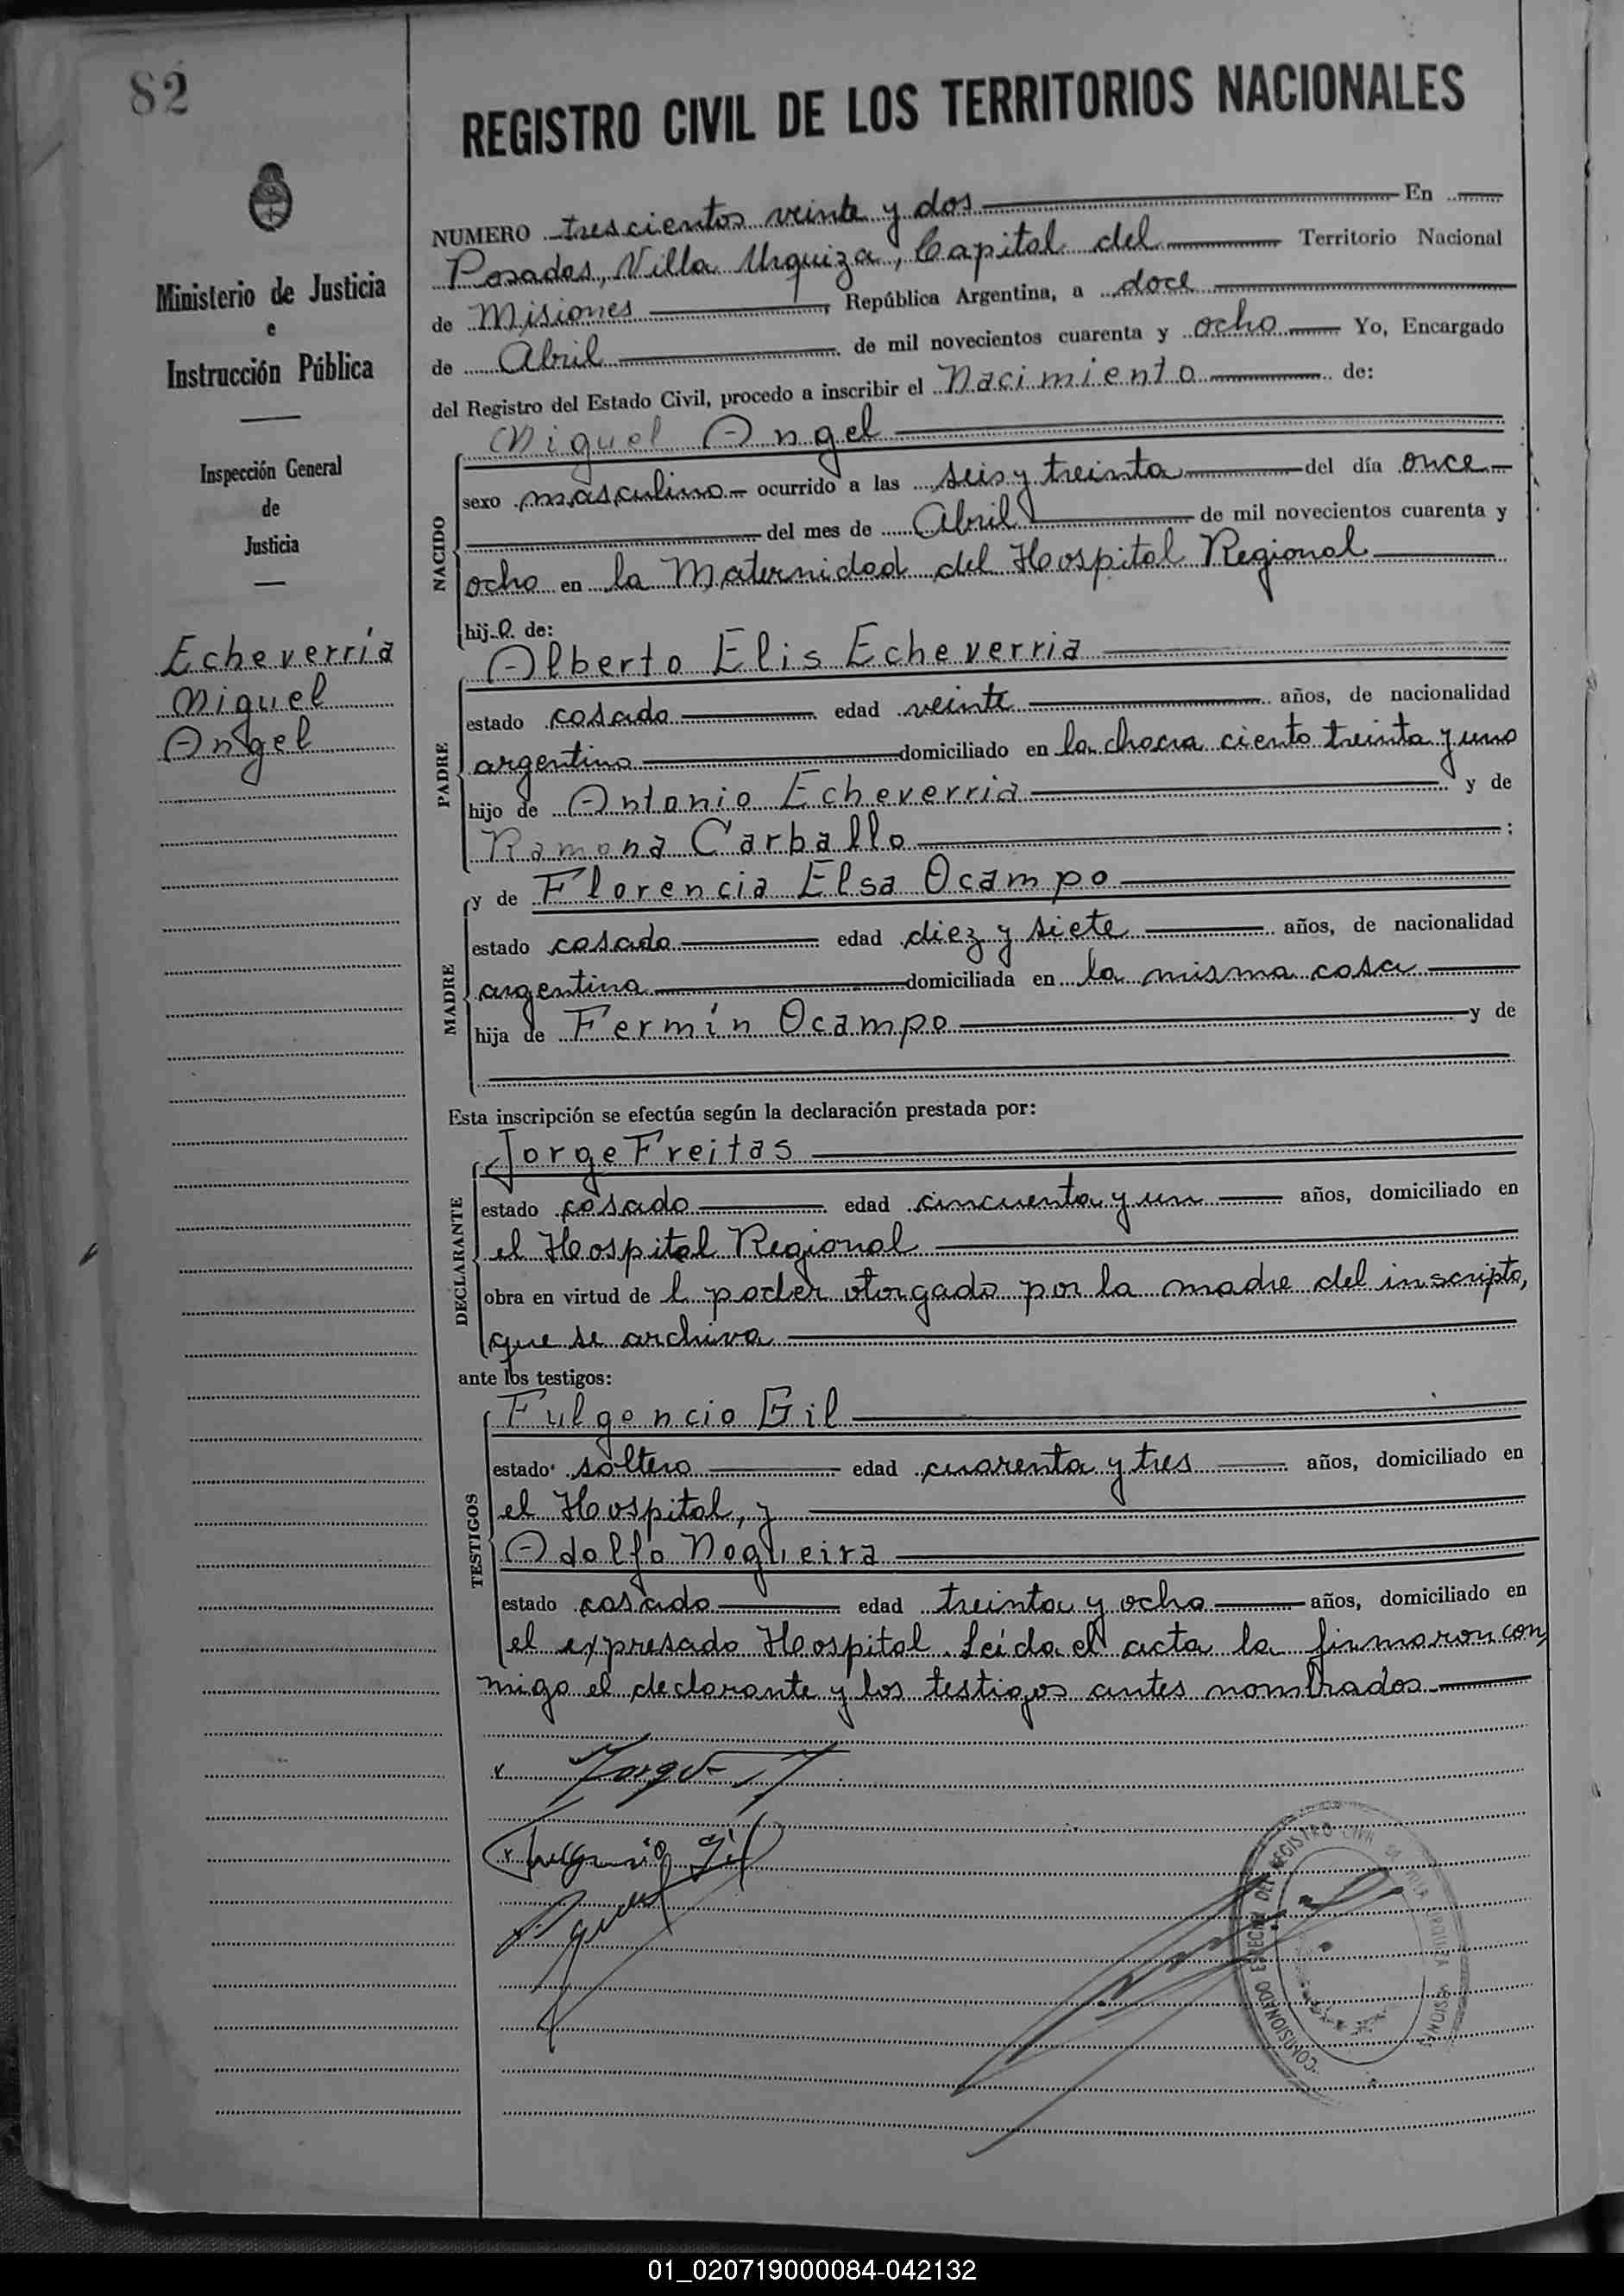 82
REGISTRO CIVIL DE LOS TERRITORIOS NACIONALES
Ministerio de Justicia
e
Instrucción Pública
Inspección General
de
Justicia
Echeverría
Miguel
Angel
NUMERO trescientos veinte y dos En
Posadas, Villa Urquiza, Capital del Territorio Nacional
de Misiones, República Argentina, a doce
de Abril de mil novecientos cuarenta y ocho Yo, Encargado
del Registro del Estado Civil, procedo a inscribir el Nacimiento de:
NACIDO
Miguel Angel
sexo masculino ocurrido a las seis y treinta del día once
del mes de Abril de mil novecientos cuarenta y
ocho en la Maternidad del Hospital Regional
hijo de:
PADRE
Alberto Elis Echeverria
estado casado edad veinte años, de nacionalidad
argentino domiciliado en la chacra ciento treinta y uno
hijo de Antonio Echeverria y de
Ramona Carballo :
MADRE
y de Florencia Elsa Ocampo
estado casada edad diez y siete años, de nacionalidad
argentina domiciliada en la misma casa
hija de Fermín Ocampo y de
Esta inscripción se efectúa según la declaración prestada por:
DECLARANTE
Jorge Freitas
estado casado edad cincuenta y un años, domiciliado en
el Hospital Regional
obra en virtud de l poder otorgado por la madre del inscripto,
que se archiva
ante los testigos:
TESTIGOS
Fulgencio Gil
estado soltero edad cuarenta y tres años, domiciliado en
el Hospital, y
Adolfo Nogueira
estado casado edad treinta y ocho años, domiciliado en
el expresado Hospital. Leida el acta la firmaron con
migo el declarante y los testigos antes nombrados
Jorge
Fulgencio Gil
COMISIONADO ESPECIAL DEL REGISTRO CIVIL VILLA URQUIZA MISIONES
01_020719000084-042132